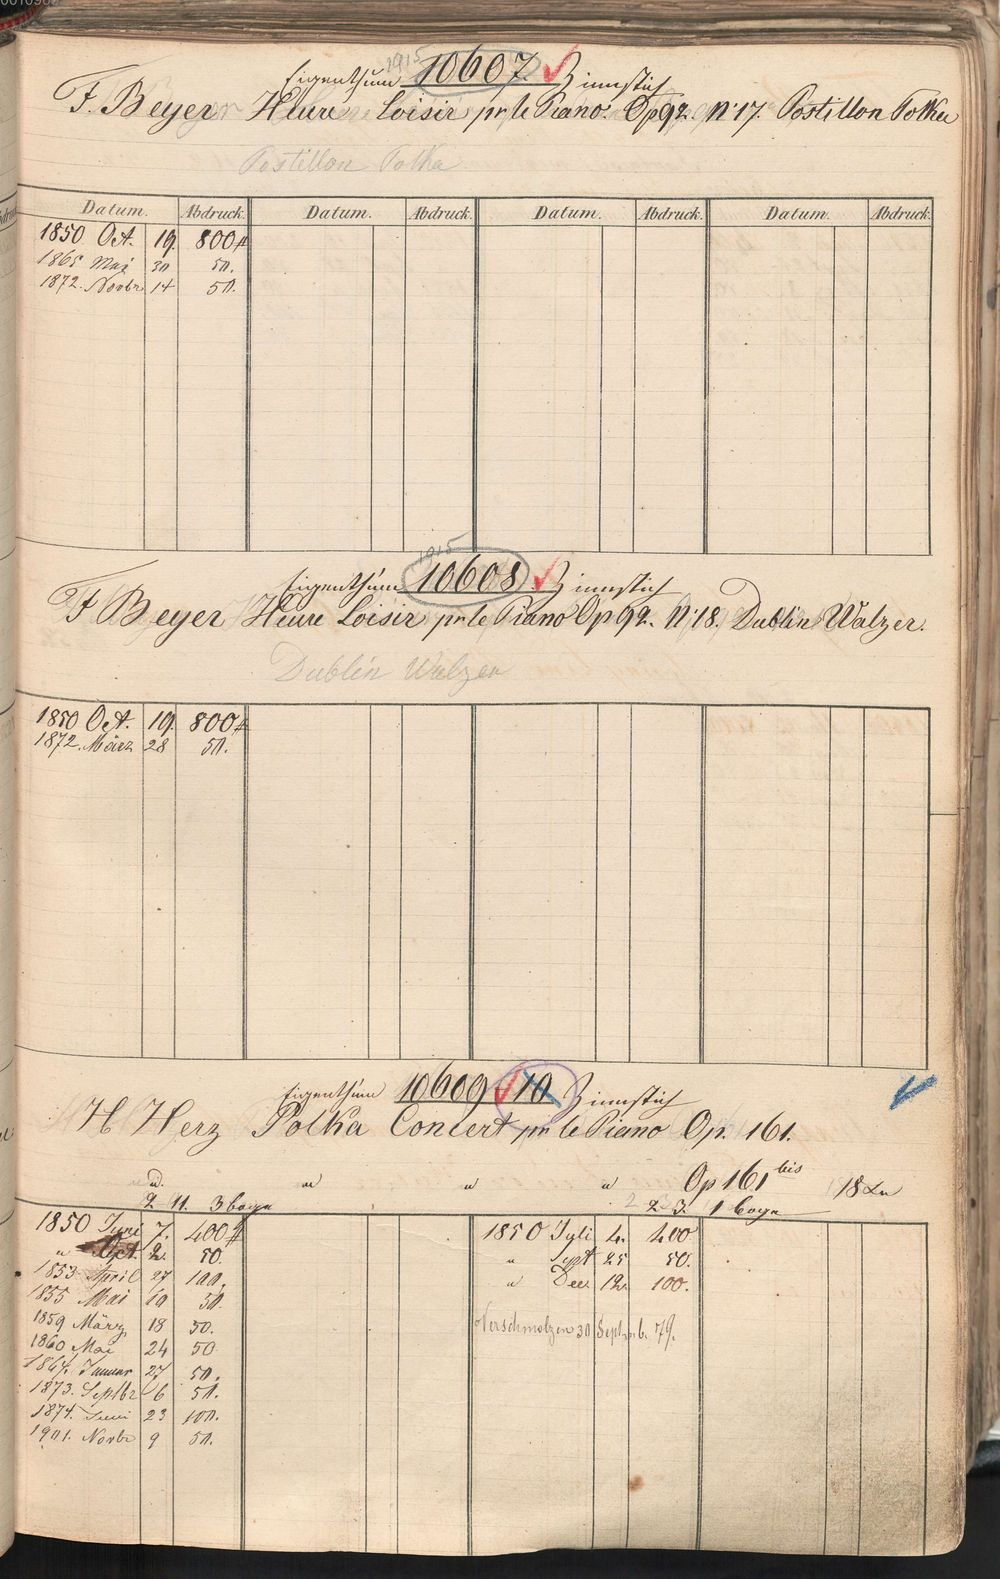 1915
Eigenthum 10607. Zinnstich
F. Beyer Heure Loisir pr le Piano. Op 92. N° 17. Postillon Polka
Postillon Polka
Datum. Abdruck. Datum. Abdruck. Datum. Abdruck. Datum. Abdruck.
1850 Oct. 19. 800
1865 Mai 30 50.
1872. Novbr 14 50.
1915
Eigenthum 10608. Zinnstich
F Beyer Heure Loisir pr le Piano Op 92. N° 18. Dublin Walzer.
Dublin Walzer
1850 Oct. 19. 800
1872. März 28 50.
Eigenthum 10609 10 Zinnstich
H Herz Polka Concert pr le Piano Op. 161.
" " " Op 161 bis
2 11. 3 bogn 2 3. 1 bogn
1850 Juni 7. 400 1850 Juli 4. 400
" Oct. 2. 50. " Sept 25 50.
1853 April 27 100. " Dec. 12. 100.
1855 Mai 19 50.
1859 März 18 50. Verschmolzen 30 Septemb. 79.
1860 Mai 24 50
1864. Januar 27 50.
1873. Septbr 6 50.
1874. Juni 23 100.
1901. Novbr 9 50.